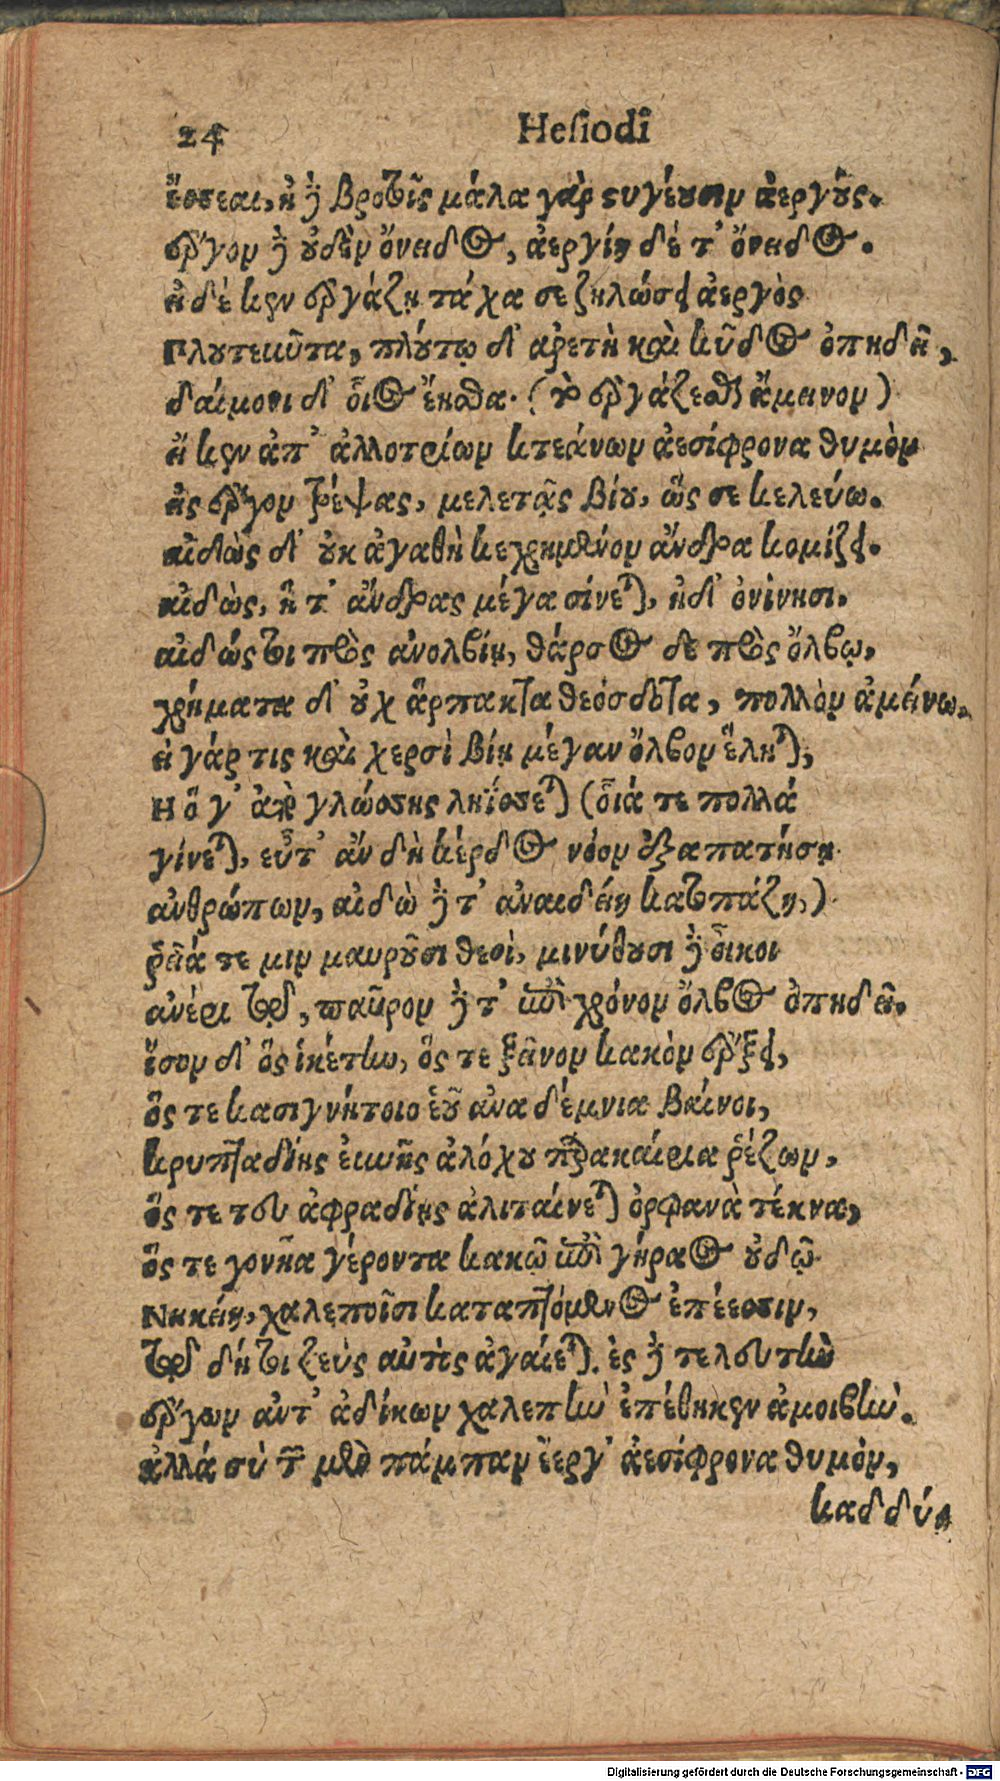 24 Hesiodi
ἔσσεαι, ἠδὲ βροτοῖς μάλα γὰρ στυγέουσιν ἀεργούς.
ἔργον δ' οὐδὲν ὄνειδος, ἀεργίη δέ τ' ὄνειδος.
εἰ δέ κεν ἐργάζῃ τάχα σε ζηλώσει ἀεργὸς
πλουτεῦντα, πλούτῳ δ' ἀρετὴ καὶ κῦδος ὀπηδεῖ,
δαίμονι δ' οἷος ἔησθα. (τὸ ἐργάζεσθαι ἄμεινον)
εἴ κεν ἀπ' ἀλλοτρίων κτεάνων ἀεσίφρονα θυμὸν
εἰς ἔργον τρέψας, μελετᾷς βίου, ὥς σε κελεύω.
αἰδὼς δ' οὐκ ἀγαθὴ κεχρημένον ἄνδρα κομίζει.
αἰδὼς, ἥ τ' ἄνδρας μέγα σίνεται, ἠδ' ὀνίνησι.
αἰδώς τοι πρὸς ἀνολβίῃ, θάρσος δὲ πρὸς ὄλβῳ,
χρήματα δ' οὐχ ἁρπακτὰ θεόσδοτα, πολλὸν ἀμείνω.
εἰ γάρ τις καὶ χερσὶ βίῃ μέγαν ὄλβον ἕληται,
ἢ ὅ γ' ἀπὸ γλώσσης ληΐσσεται (οἷά τε πολλὰ
γίνεται, εὖτ' ἂν δὴ κέρδος νόον ἐξαπατήσῃ
ἀνθρώπων, αἰδὼ δέ τ' ἀναιδείη κατοπάζῃ,)
ῥεῖά τέ μιν μαυροῦσι θεοὶ, μινύθουσι δὲ οἶκοι
ἀνέρι τῷ, παῦρον δέ τ' ἐπὶ χρόνον ὄλβος ὀπηδεῖ.
ἶσον δ' ὅς ἱκέτην, ὅς τε ξεῖνον κακὸν ἔρξει,
ὅς τε κασιγνήτοιο ἑοῦ ἀνὰ δέμνια βαίνοι,
κρυπταδίης εὐνῆς ἀλόχου παρακαίρια ῥέζων,
ὅς τέ τευ ἀφραδίῃς ἀλιταίνεται ὀρφανὰ τέκνα,
ὅς τε γονῆα γέροντα κακῷ ἐπὶ γήραος οὐδῷ
νεικείῃ, χαλεποῖσι καταπτόμενος ἐπέεσσιν,
τῷ δή τοι ζεὺς αὐτὸς ἀγαίεται. ἐς δὲ τελευτὴν
ἔργων ἀντ' ἀδίκων χαλεπὴν ἐπέθηκεν ἀμοιβήν.
ἀλλὰ σὺ τῶν μὲν πάμπαν ἔεργ' ἀεσίφρονα θυμὸν,
καδδύ-
Digitalisierung gefördert durch die Deutsche Forschungsgemeinschaft - DFG